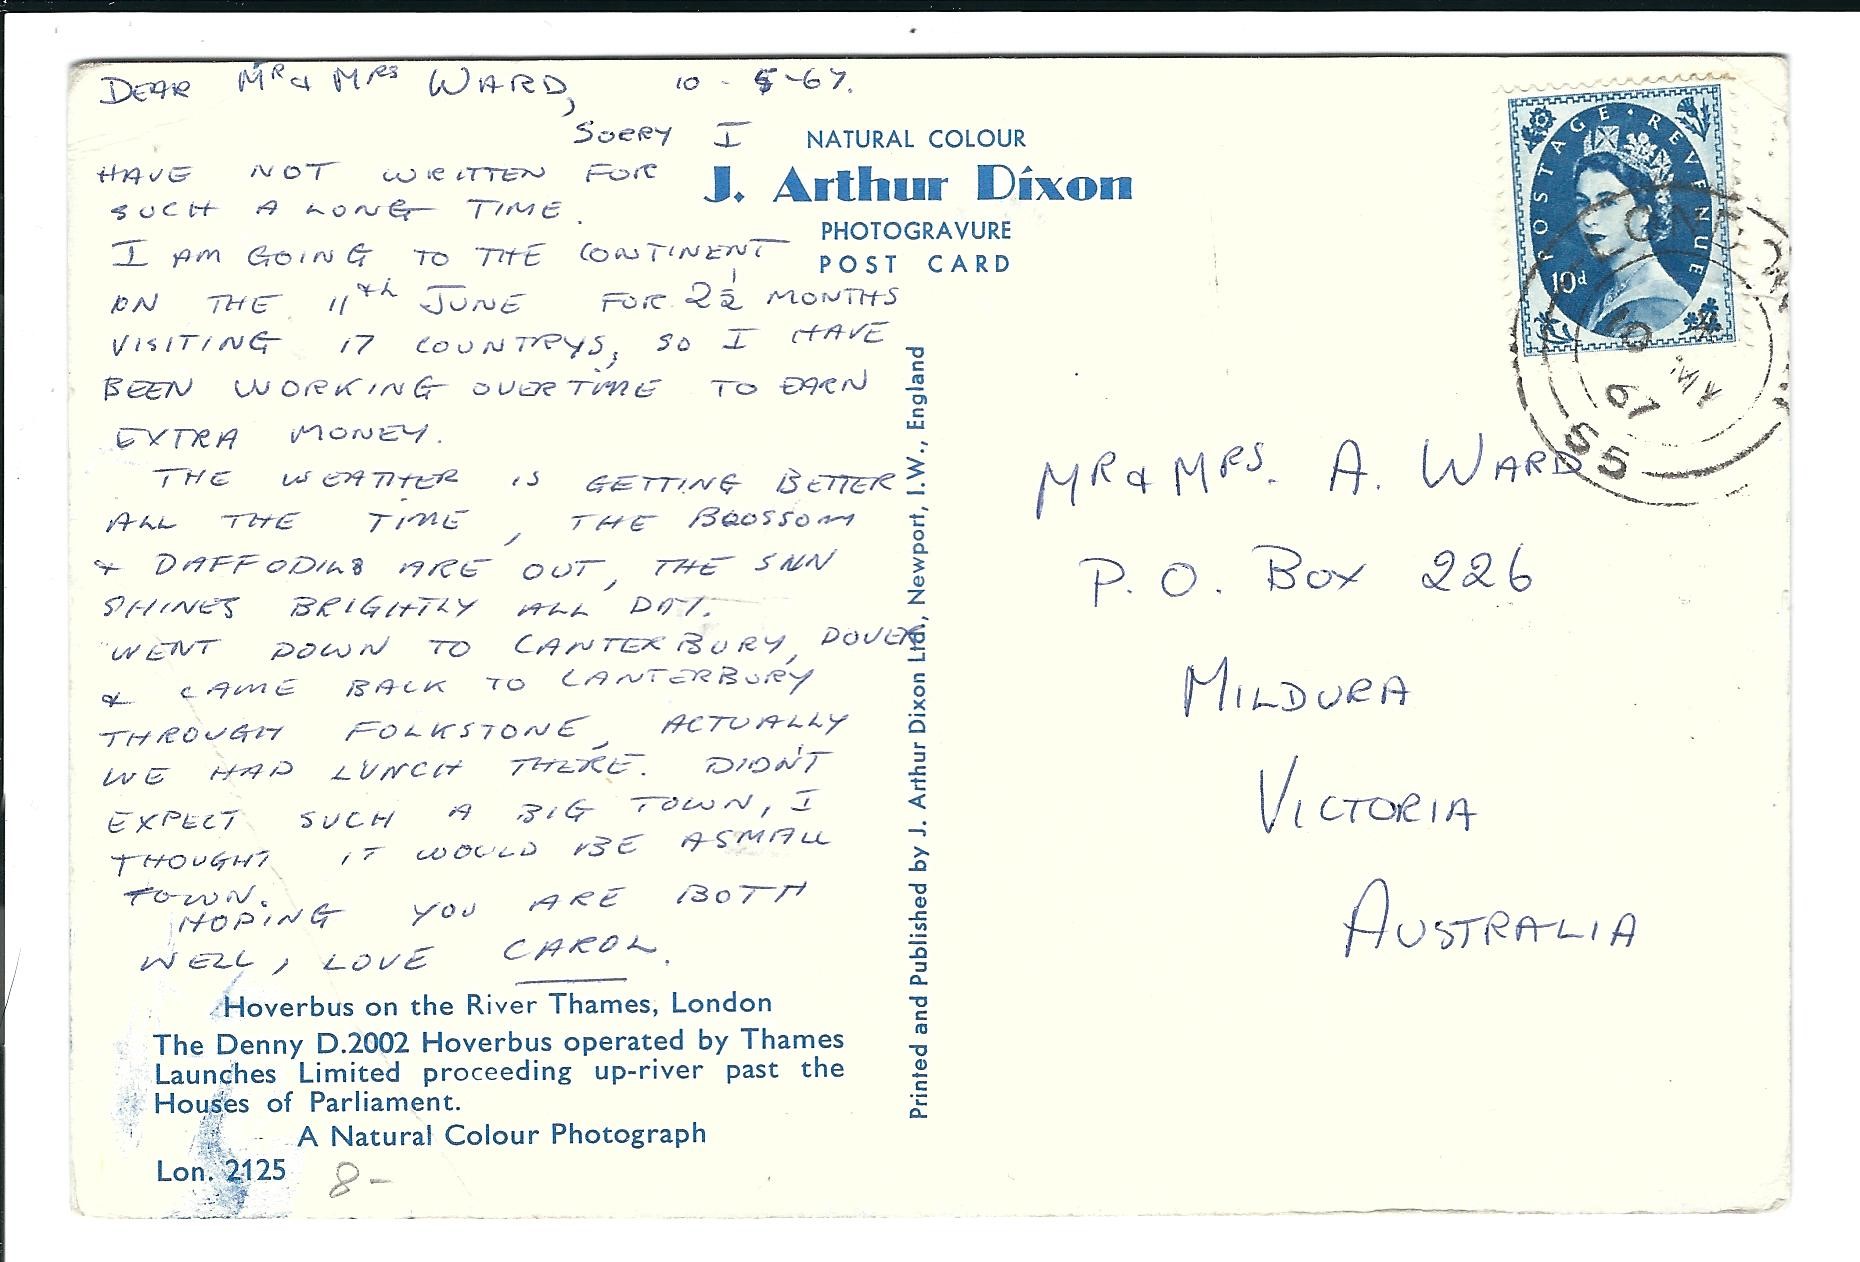 DEAR MR & MRS WARD, 10-5-67.
SORRY I
HAVE NOT WRITTEN FOR
SUCH A LONG TIME.
I AM GOING TO THE CONTINENT
ON THE 11th JUNE FOR 2½ MONTHS
VISITING 17 COUNTRYS, SO I HAVE
BEEN WORKING OVERTIME TO EARN
EXTRA MONEY.
THE WEATHER IS GETTING BETTER
ALL THE TIME, THE BLOSSOM
& DAFFODILS ARE OUT, THE SUN
SHINES BRIGHTLY ALL DAY.
WENT DOWN TO CANTERBURY, DOVER
& CAME BACK TO CANTERBURY
THROUGH FOLKSTONE, ACTUALLY
WE HAD LUNCH THERE. DIDN'T
EXPECT SUCH A BIG TOWN, I
THOUGHT IT WOULD BE A SMALL
TOWN.
HOPING YOU ARE BOTH
WELL, LOVE CAROL.
Hoverbus on the River Thames, London
The Denny D.2002 Hoverbus operated by Thames
Launches Limited proceeding up-river past the
Houses of Parliament.
A Natural Colour Photograph
Lon. 2125
8-
NATURAL COLOUR
J. Arthur Dixon
PHOTOGRAVURE
POST CARD
Printed and Published by J. Arthur Dixon Ltd., Newport, I.W., England
POSTAGE · REVENUE
10d
LONDON
10 MY
67
S5
MR & MRS. A. WARD
P. O. BOX 226
MILDURA
VICTORIA
AUSTRALIA